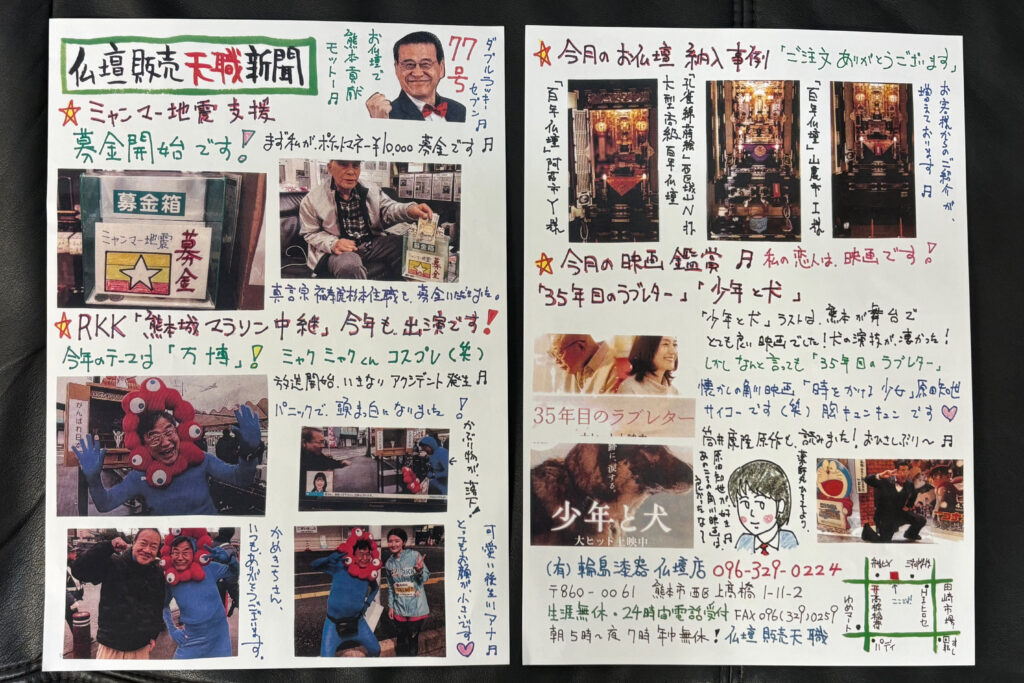 仏壇販売天職新聞
お仏壇で
熊本貢献
モットー♫
77号
ダブルラッキーセブン♫
☆ミャンマー地震支援
募金開始です!
まず私が、ポケットマネー¥10,000募金です♫
募金箱
ミャンマー地震
募金
募金箱
募金
真言宗
募金いただきました。
☆RKK「熊本城マラソン中継」今年も、出演です!
今年のテーマは「万博」!
ミャクミャクくんコスプレ(笑)
放送開始、いきなりアクシデント発生♫
パニックで、頭ま白になりました!
かぶり物が、落下!
がんばれ
かめきちさん、
いつもありがとうございます。
可愛い後生川アナ♫
とってもお顔が、小さいです♡
☆今月のお仏壇納入事例「ご注文ありがとうございます」
「百年仏壇」阿蘇市Y様
大型高級百年仏壇
「百年仏壇」山鹿市I様
お客様からのご紹介が、
増えております♫
☆今月の映画鑑賞♫私の恋人は、映画です!
「35年目のラブレター」「少年と犬」
「少年と犬」ラストは、熊本が舞台で
とても良い映画でした!犬の演技が、凄かった!
しかしなんと言っても「35年目のラブレター」
懐かしの角川映画「時をかける少女」原田知世
サイコーです(笑)胸キュンキュンです♡
筒井康隆原作も、読みました!おひさしぶり〜♫
35年目のラブレター
少年と犬
大ヒット上映中
薬師丸ひろ子より、
原田知世が好き♫
あのころの角川映画は、
(有)輪島漆器仏壇店 096-329-0224
〒860-0061 熊本市西区上高橋1-11-2
生涯無休・24時間電話受付 FAX096(329)0259
朝5時〜夜7時年中無休!仏壇販売天職
田崎市場
ココ